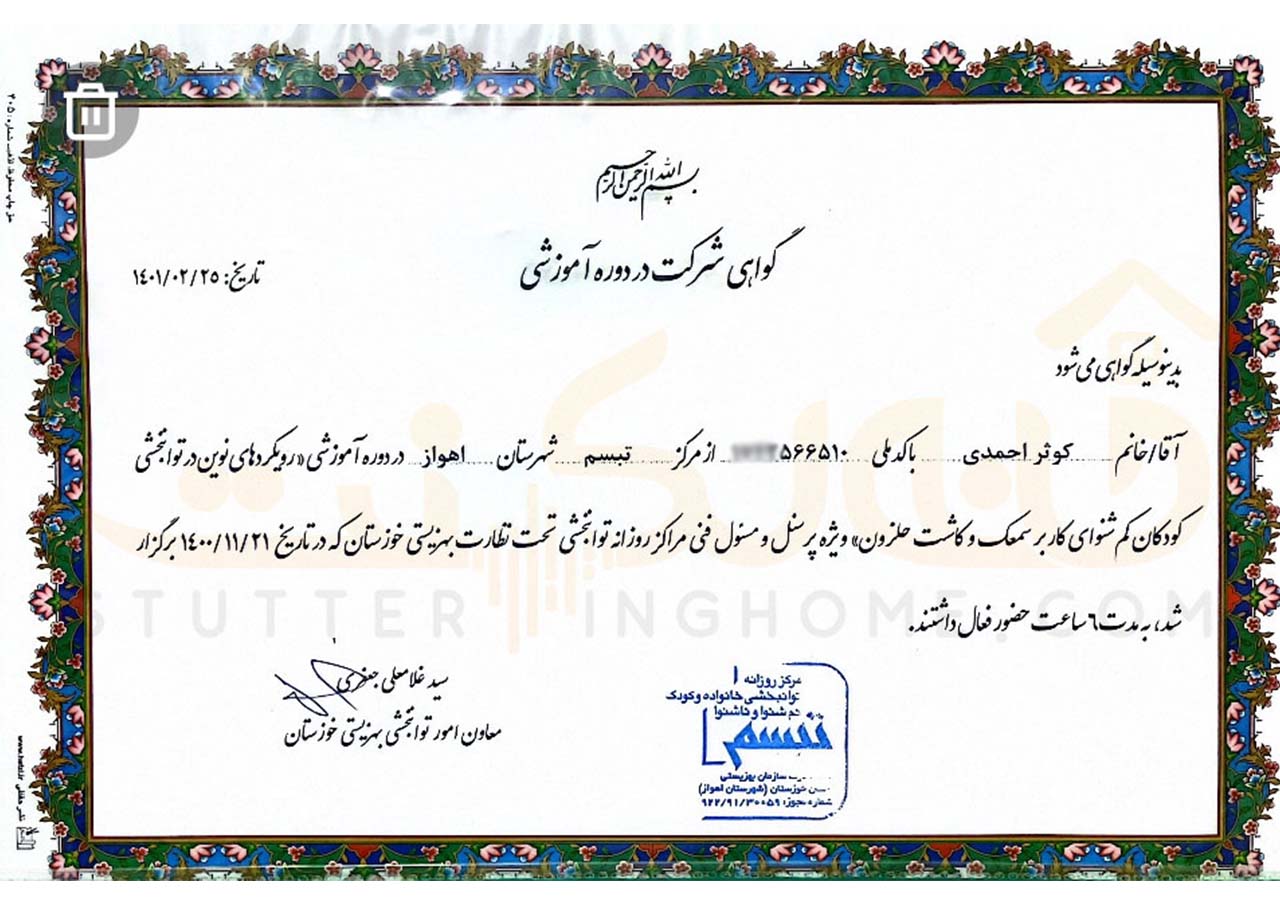 بسم الله الرحمن الرحیم
گواهی شرکت در دوره آموزشی
تاریخ: ۱۴۰۱/۰۲/۲۵
بدینوسیله گواهی می شود
آقا/خانم کوثر احمدی باکدملی ۵۶۶۵۱۰ از مرکز تبسم شهرستان اهواز در دوره آموزشی «رویکردهای نوین در توانبخشی
کودکان کم شنوای کاربر سمعک و کاشت حلزون» ویژه پرسنل و مسئول فنی مراکز روزانه توانبخشی تحت نظارت بهزیستی خوزستان که در تاریخ ۱۴۰۰/۱۱/۲۱ برگزار
شد، به مدت ۶ ساعت حضور فعال داشتند.
STUTTERINGHOME.COM
سید غلامعلی جعفری
معاون امور توانبخشی بهزیستی خوزستان
مرکز روزانه
توانبخشی خانواده و کودک
کم شنوا و ناشنوا
تبسم
سازمان بهزیستی
خوزستان (شهرستان اهواز)
شماره مجوز: ۹۲۲/۹۱/۳۰۰۵۹